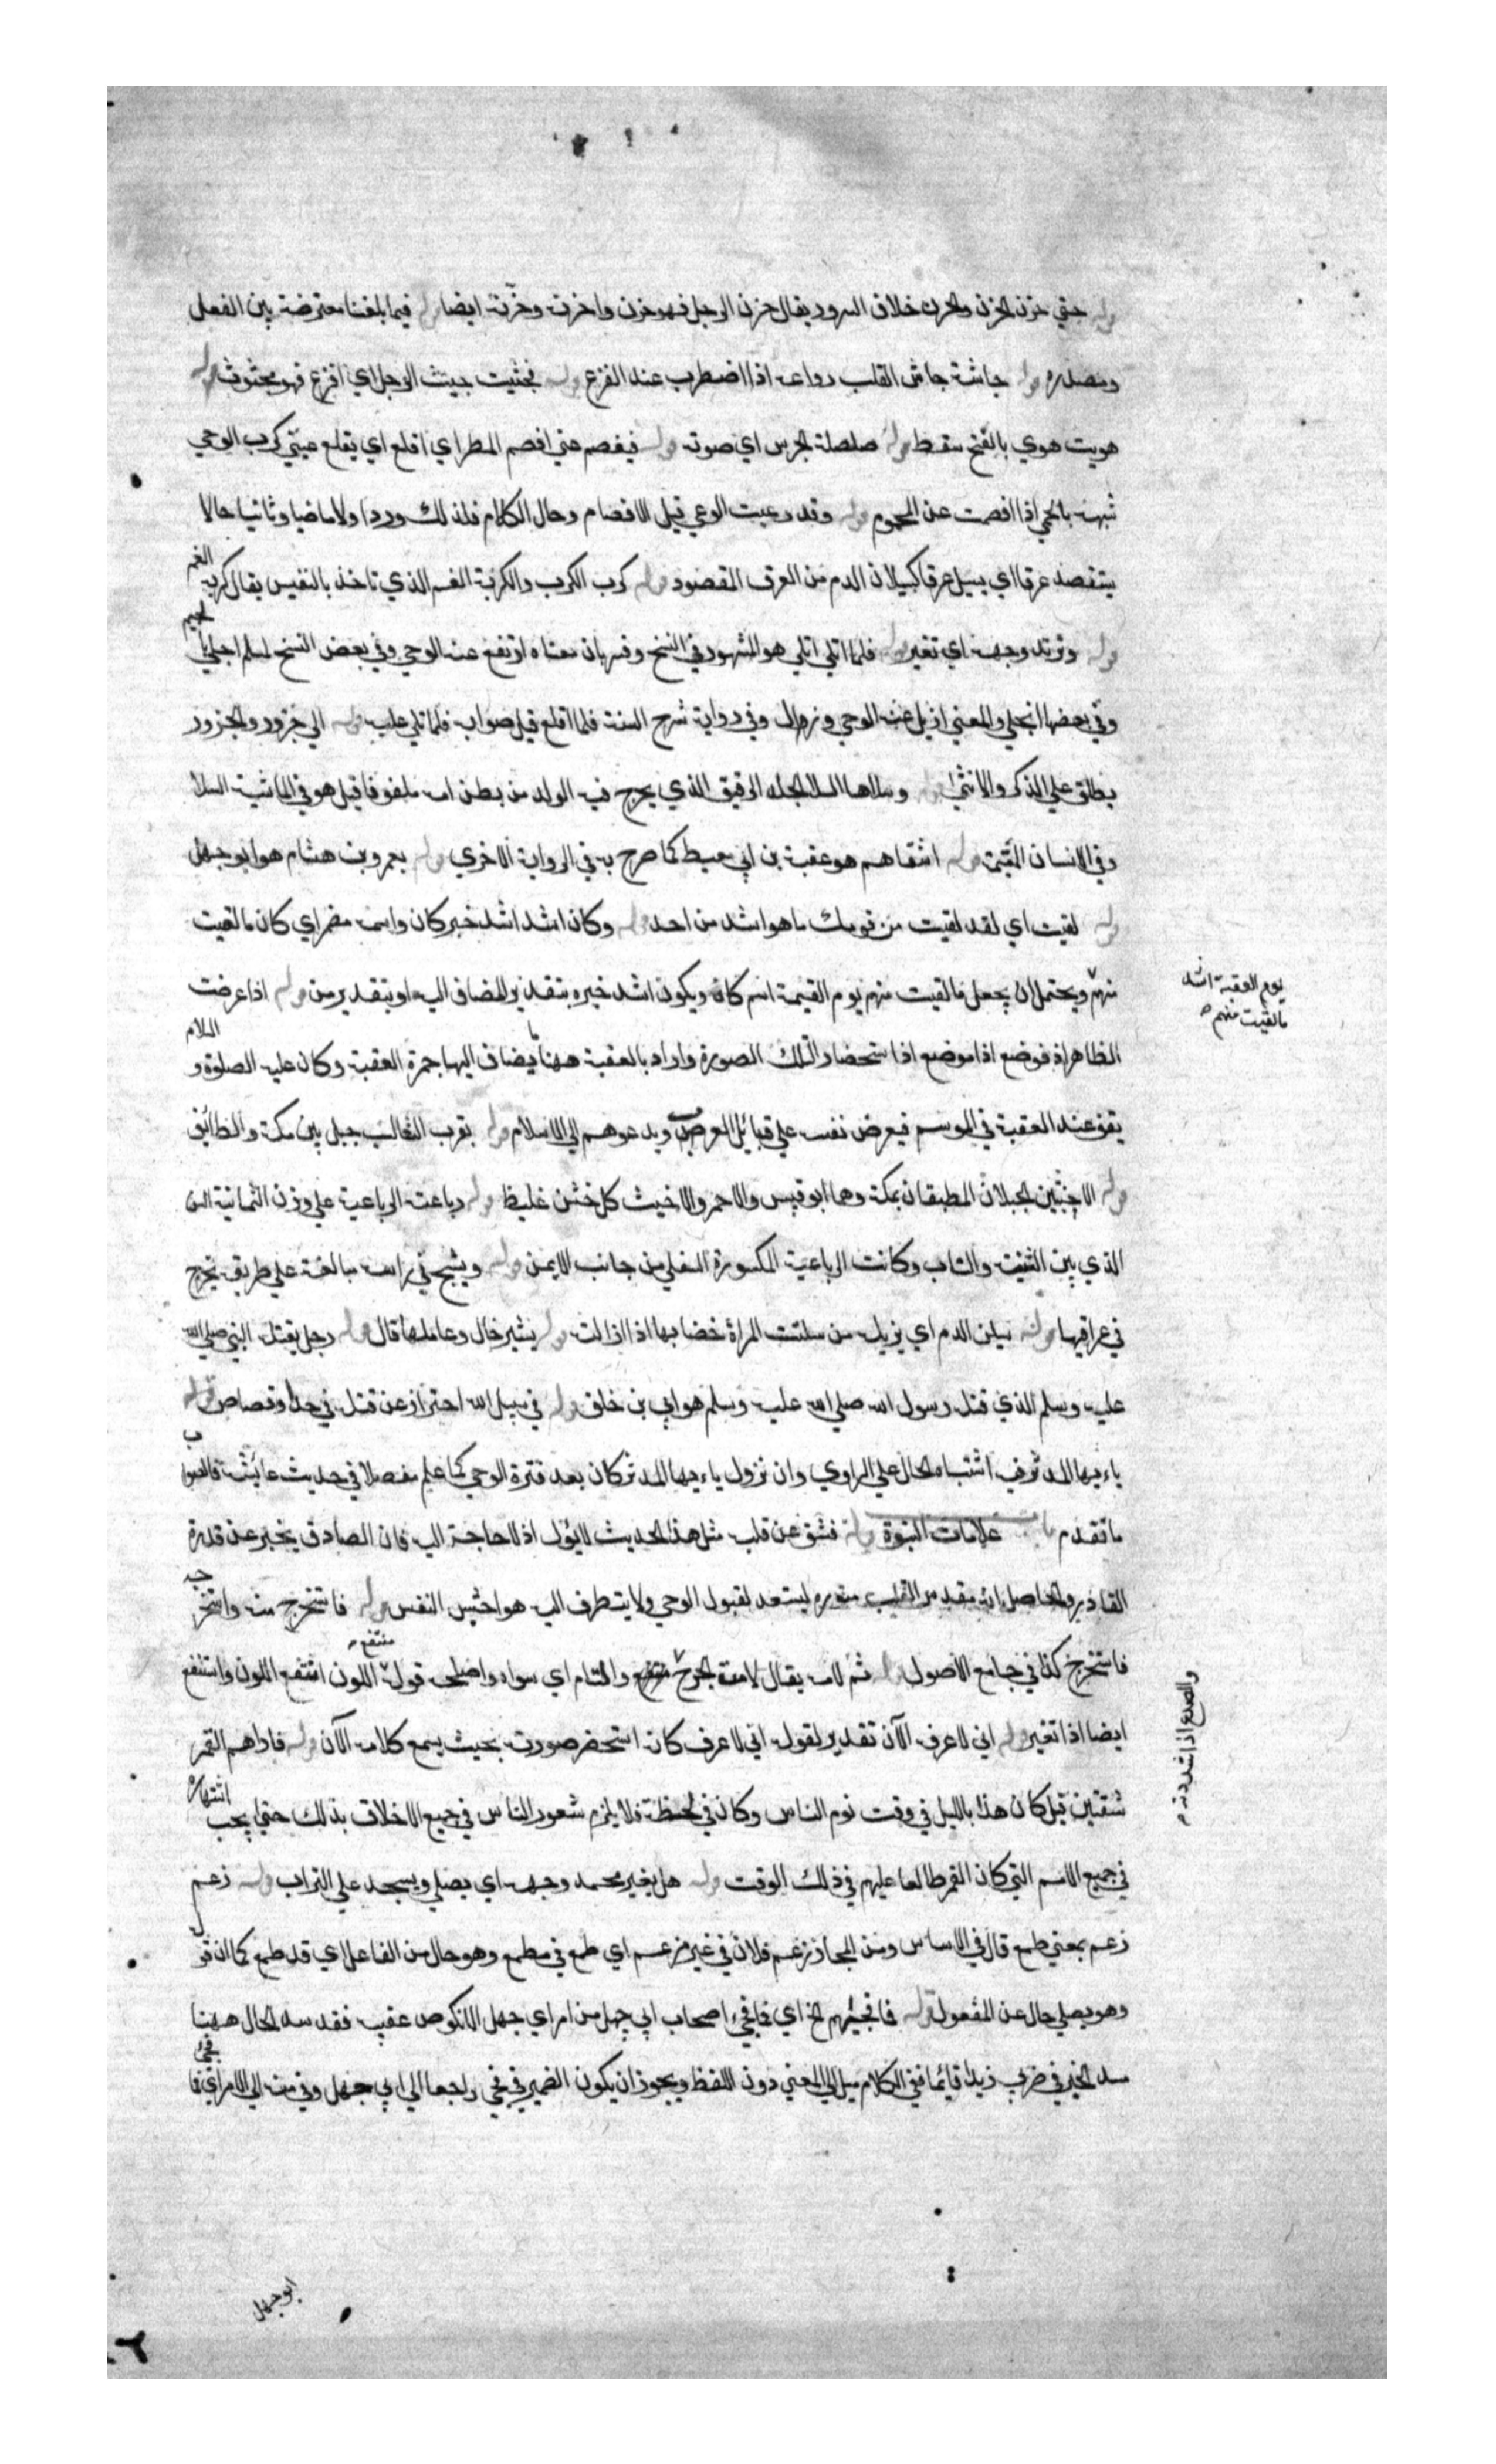 قوله حتي حزن الحزن والحزن خلاف السرور يقال حزن الرجل فهو حزن واحزنه وحزنه ايضا قوله فيما بلغنا معترضة بين الفعل
ومصدره قوله جاشه جاش القلب رواعه اذا اضطرب عند الفزع قوله فجثيت جيث الرجل اي افزع فهو مجثوث قوله
هويت هوي بالفتح سقط قوله صلصلة الجرس اي صوته قوله فيفصم عني افصم المطر اي اقلع اي يقلع عني كرب الوحي
شبه بالحمي اذا افصمت عن المحموم قوله وقد وعيت الوعي قبل الافصام وحال الكلام فلذلك ورد اولا ماضيا وثانيا حالا
يتفصد عرقا اي يسيل عرقا كسيلان الدم من العرق المقصود قوله كرب الكرب والكربة الغم الذي تاخذ بالنفس يقال كربه الغم
قوله وتربد وجهه اي تغير قوله فلما اتلي اتلي هو المشهور في النسخ وفسر بان معناه ارتفع عنه الوحي وفي بعض النسخ لمسلم اجلي بالجيم
وفي بعضها انجلي والمعني ازيل عنه الوحي وزوال وفي رواية شرح السنة فلما اقلع قيل صوابه فلما تلي عليه قوله الي جزور والجزور
يطلق علي الذكر والانثي قوله وسلاها السلا الجلد الرقيق الذي يخرج فيه الولد من بطن امه ملفوفا قيل هو في الماشية السلا
وفي الانسان المشيمة قوله اشقاهم هو عقبة بن ابي معيط كما صرح به في الرواية الاخري قوله بعمرو بن هشام هو ابو جهل
قوله لقيت اي لقد لقيت من قومك ما هو اشد من احد قوله وكان اشد اشد خبر كان واسمه مضمر اي كان ما لقيت
منهم ويحتمل ان يجعل ما لقيت منهم يوم القيمة اسم كان ويكون اشد خبره بتقدير المضاف اليه او بتقدير من قوله اذا عرضت
يوم العقبة اشد
ما لقيت منهم
الظاهر اذ فوضع اذا موضع اذ استحضارا لتلك الصورة واراد بالعقبة ههنا ما يضاف اليها جمرة العقبة وكان عليه الصلوة والسلام
يقف عند العقبة في الموسم فيعرض نفسه علي قبائل العرب ويدعوهم الي الاسلام قوله بقرب الثعالب جبل بين مكة والطائف
قوله الاخشبين الجبلان المطبقان بمكة وهما ابو قبيس والاحمر والاخشب كل خشن غليظ قوله رباعيته الرباعية علي وزن الثمانية السن
الذي بين الثنية والناب وكانت الرباعية المكسورة السفلي من جانب الايمن قوله ويشج في راسه مبالغة علي طريقة يجرح
في عراقيبها قوله يسلت الدم اي يزيله من سلتت المراة خضابها اذا ازالت قوله يشير حال وعاملها قال قوله رجل يقتله النبي صلي الله
عليه وسلم الذي قتله رسول الله صلي الله عليه وسلم هو ابي بن خلف قوله في سبيل الله احتراز عن قتله في حد او قصاص قوله
يا ايها المدثر فيه اشتباه الحال علي الراوي وان نزول يا ايها المدثر كان بعد فترة الوحي كما علم مفصلا في حديث عايشة فالصواب
ما تقدم باب علامات النبوة قوله فشق عن قلبه مثل هذا الحديث لا يؤل اذ لا حاجة اليه فان الصادق يخبر عن قدرة
القادر والحاصل انه يقدس القلب منوره ليستعد لقبول الوحي ولا يتطرف اليه هواجس النفس قوله فاستخرج منه واستخرجه
فاستخرج كذا في جامع الاصول قوله ثم لامه يقال لامت الجرح والتام اي سواه واصلحه قوله منتقع اللون انتقع اللون وانتقع
والصدع اذا شددته
ايضا اذا تغير قوله اني لاعرفه الآن تقدير لقوله اني لاعرف كانه استحضر صورته بحيث يسمع كلامه الآن قوله فاراهم القمر
شقتين قيل كان هذا بالليل في وقت نوم الناس وكان في لحظة فلا يلزم شعور الناس في جميع الافاق بذلك حتي يجب اشتهاره
في جميع الامم التي كان القمر طالعا عليهم في ذلك الوقت قوله هل يعفر محمد وجهه اي يصلي ويسجد علي التراب قوله زعم
زعم بمعني طمع قال في الاساس ومن المجاز زعم فلان في غير مزعم اي طمع في مطمع وهو حال من الفاعل اي قد طمع كما ان قوله
وهو يصلي حال عن المفعول قوله فما فجئهم الخ اي فما فجيء اصحاب ابي جهل من امر ابي جهل الا نكوص عقبيه فقد سد الحال ههنا
سد الخبر في ضربي زيدا قائما ففي الكلام ميل الي المعني دون اللفظ ويجوز ان يكون الضمير في فجي راجعا الي ابي جهل وفي منه الي الامر اي فما فجئ
ابو جهل